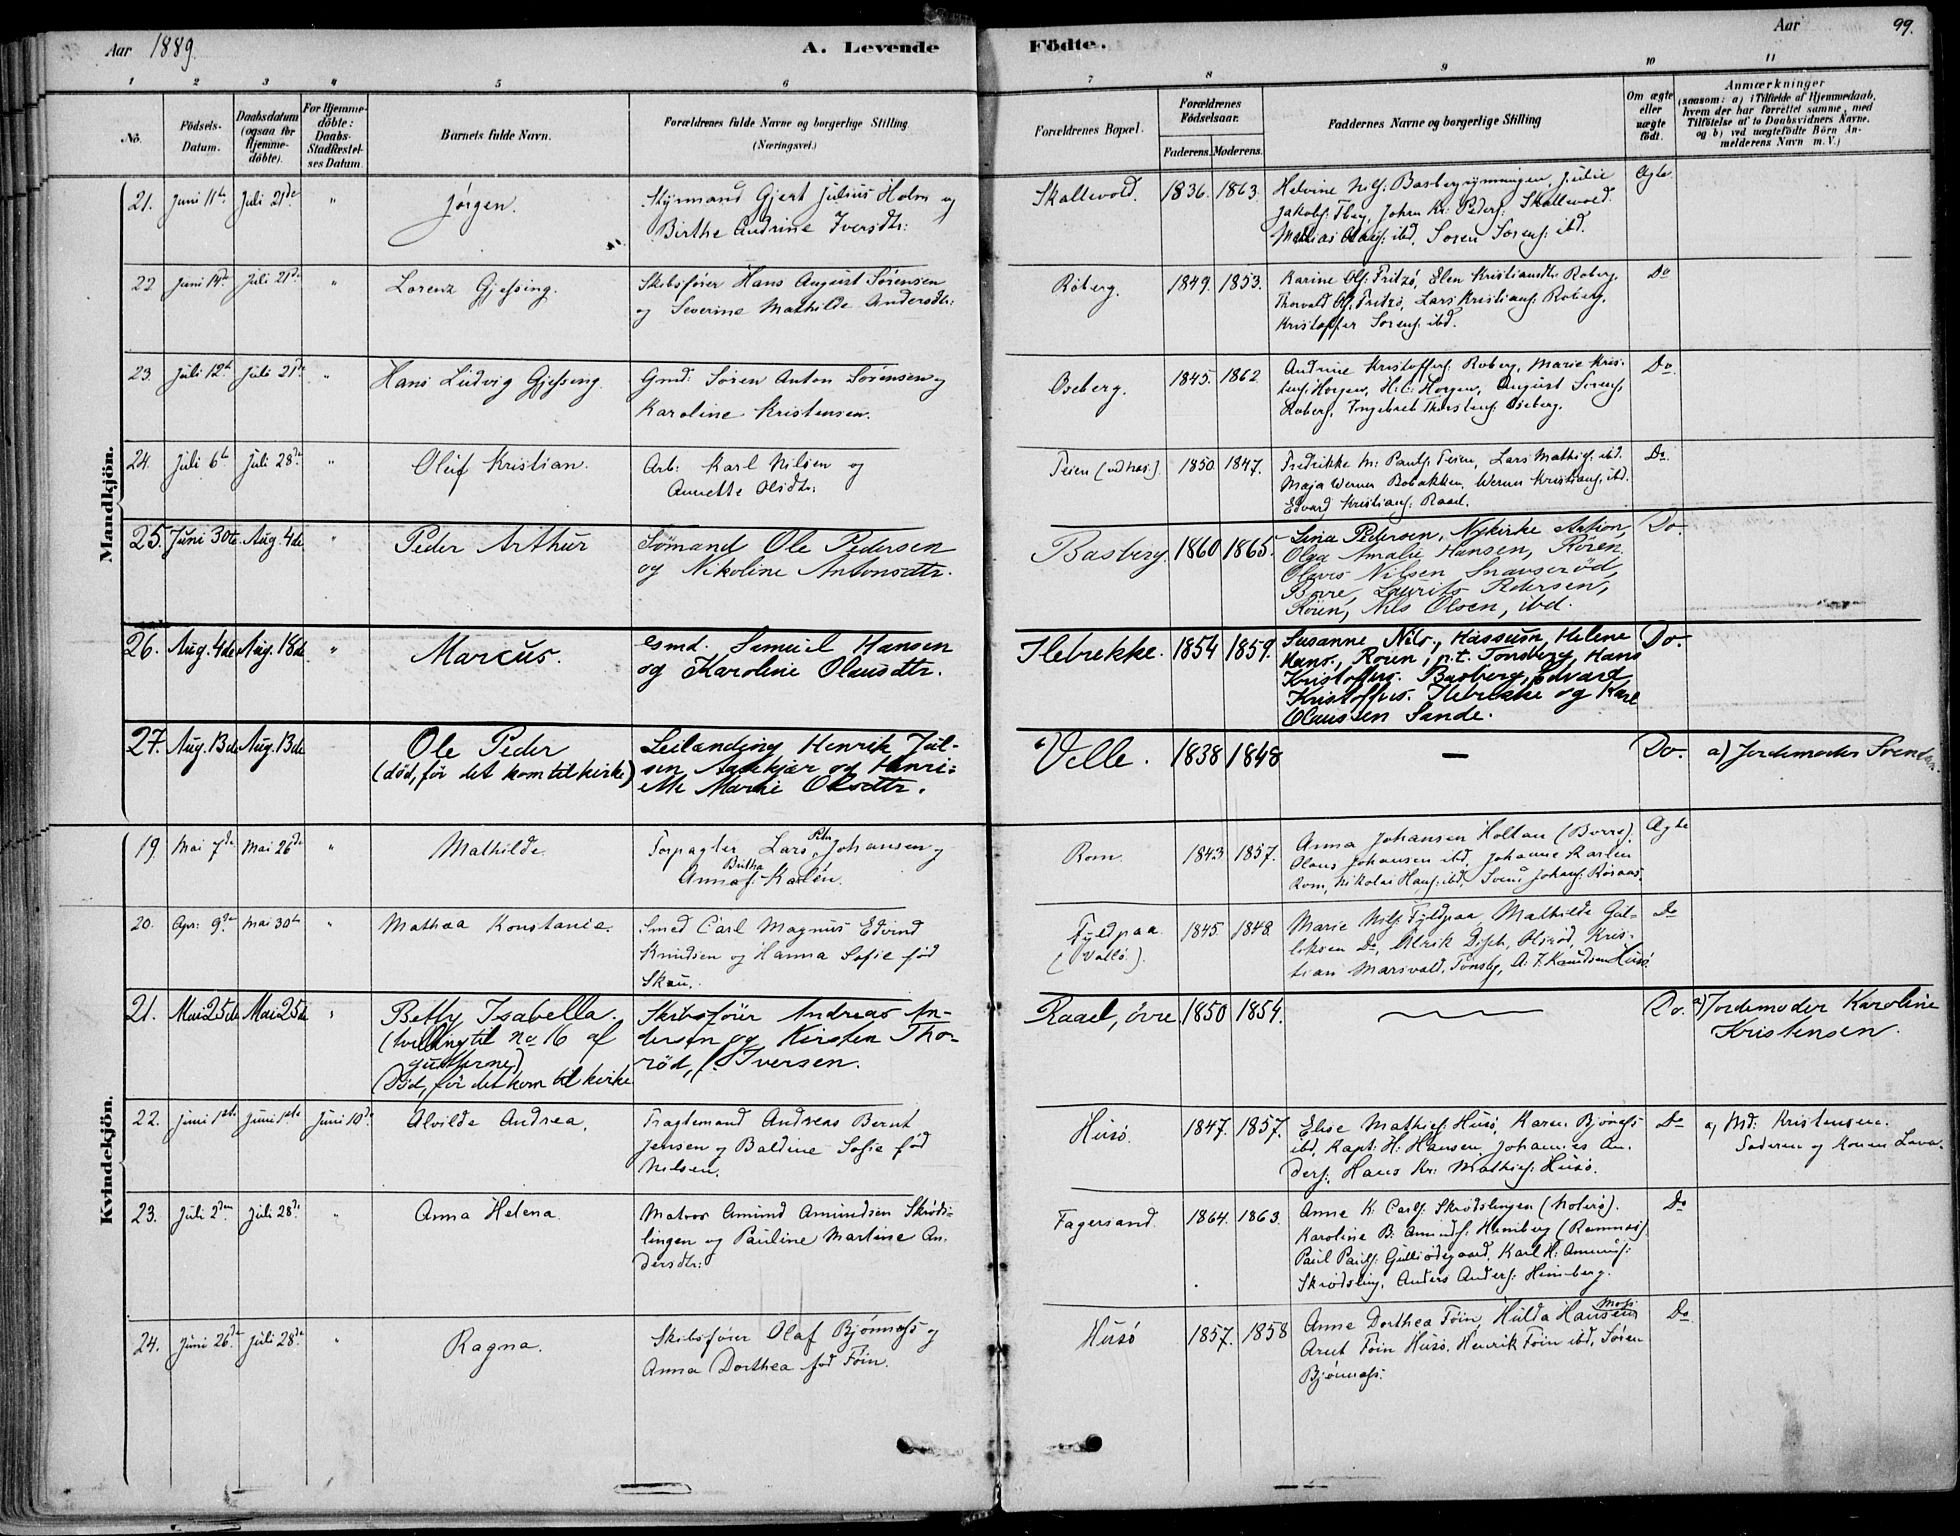 Aar 1889.
A. Levende
Födte.
Aar
99.
1 2 3 4 5 6 7 8 9 10 11
No.
Födsels-
Datum.
Daabsdatum
(ogsaa for
Hjemme-
döbte).
For Hjemme-
döbte:
Daabs-
Stadfæstel-
ses Datum.
Barnets fulde Navn.
Forældrenes fulde Navne og borgerlige Stilling
(Næringsvei.)
Forældrenes Bopæl.
Forældrenes
Födselsaar.
Faderens. Moderens.
Faddernes Navne og borgerlige Stilling
Om ægte
eller
uægte
født.
Anmærkninger
(saasom: a) i Tilfælde af Hjemmedaab,
hvem der har forrettet samme, med
Tilføielse af to Daabsvidners Navne,
og b) ved uægtefödte Börn An-
melderens Navn m. V.)
Mandkjön.
21. Juni 11te Juli 21de " Jörgen.
Styrmand Gjert Julius Holm og
Birthe Andrine Iversdtr:
Skallevold. 1836. 1863.
Helvine Nils: Basbergrymningen, Julie
Jakobs: Tbeg, Johan Kr: Peders: Skallevold.
Mathias Olaus: ibd, Soren Sorens: ibd.
Ægte
22. Juni 14de Juli 21de " Lorenz Gjessing.
Skibsfører Hans August Sørensen
og Severine Mathilde Andersdtr:
Röberg. 1849. 1853.
Karine Ols: Fritzö, Elen Kristiandtr. Roberg,
Thorvald Ols: Fritzö, Lars Kristians: Roberg,
Kristoffer Sorens: ibd.
Do
23. Juli 12te Juli 21de " Hans Ludvig Gjessing.
Gmd: Sören Anton Sörensen og
Karoline Kristensen.
Oseberg. 1845. 1862
Andrine Kristoffers: Roberg, Marie Kris-
tens: Horgen, H. C: Horgen, August Sorens:
Roberg, Ingebret Thorstens: Oseberg.
Do.
24. Juli 6te Juli 28de " Oluf Kristian.
Arb: Karl Nilsen og
Annette Olsdtr:
Teien 1850. 1847.
Fredrikke M: Pauls: Teien, Lars Mathis: ibd.
Maja Werner Bobakken, Werner Kristians: ibd.
Edvard Kristians: Raael.
Do.
25. Juni 30te. Aug. 4de " Peder Arthur
Sömand Ole Pedersen
og Nikoline Antonsdtr.
Basberg. 1860 1865.
Lina Pedersen, Nykirke
Olga Amalie Hansen, Rören.
Olaves Nilsen Snauseröd,
Borre, Laurits Pedersen,
Rören, Nils Olsen, ibd.
Do.
26. Aug. 4de Aug. 18de " Marcus.
Gsmd. Samuel Hansen
og Karoline Olausdtr.
Ilebrekke. 1854 1859.
Susanne Nils., Hassum, Helene
Hans., Roren, p.t. Tonsberg, Hans
Kristoffers. Basberg, Edvard
Kristoffers. Ilebrekke og Karl
Claussen Sande.
Do.
27. Aug. 13de Aug. 13de
Ole Peder
(död, för det kom til kirke)
Leilænding Henrik Jul-
sen Aadekjær og Henri-
ette Marie Olsdtr.
Velle. 1838 1848
—
Do.
a) Jordemoder Svendsen.
Kvindekjön.
19. Mai 7de Mai 26de " Mathilde
Forpagter Lars Peter Johansen og
Anna Britha f: Karlén.
Rom. 1843 1857.
Anna Johansen Holtan (Borre).
Olaus Johansen ibd, Johanne Karlen
Rom, Nikolai Hans: ibd, Svens Johans: Roraas.
Ægte
20. Apr: 9de Mai 30te " Mathea Konstance.
Smed Carl Magnus Edvind
Knudsen og Hanna Sofie fød
Skau.
Fyldpaa
(Vallö).
1845. 1848.
Marie Nils: Fyldpaa, Mathilde Gul-
liksen Do, Ulrik Disch, Olsröd, Kris-
tian Marivald, Tonsbg, A. F. Knudsen Husö.
Do
21. Mai 25de Mai 25de " Betty Isabella.
(tvilling til no 16 af
gutterne)
(Död, för det kom til kirke
Skibsförer Andreas An-
dersen og Kirsten Tho-
röd, f. Iversen.
Raael, övre 1850 1854.
Do.
a) Jordemoder Karoline
Kristensen.
22. Juni 1ste Juni 1ste Juni 10de Alvilde Andrea.
Fragtemand Andreas Bernt
Jensen og Baldine Sofie fød
Nilsen.
Husö. 1847. 1857.
Elise Mathis: Husö, Karen Bjöness
ibd, Kapt: H: Hansen, Johannes An-
ders:, Hans Kr: Mathis: Husö.
Do
a) Md: Kristensen.
Faderen og Konen
23. Juli 2den Juli 28de " Anna Helena.
Matros Amund Amundsen Skröds-
lingen og Pauline Martine An-
dersdtr:
Fagersand. 1864. 1863.
Anne K. Carls: Skrödslingen (Noterö).
Karoline B: Amunds: Himberg (Ramnæs).
Paul Pauls: Gulliödegaard, Karl H: Amunds:
Skrödsling, Anders Anders: Himberg.
Do
24. Juni 26de Juli 28de " Ragna.
Skibsfører Olaf Bjönness og
Anna Dorthea fød Föin.
Husö 1857. 1858
Anne Dorthea Föin, Hulda Hansen
Arnt Föin Husö, Henrik Föin ibd, Sören
Bjönness.
Do